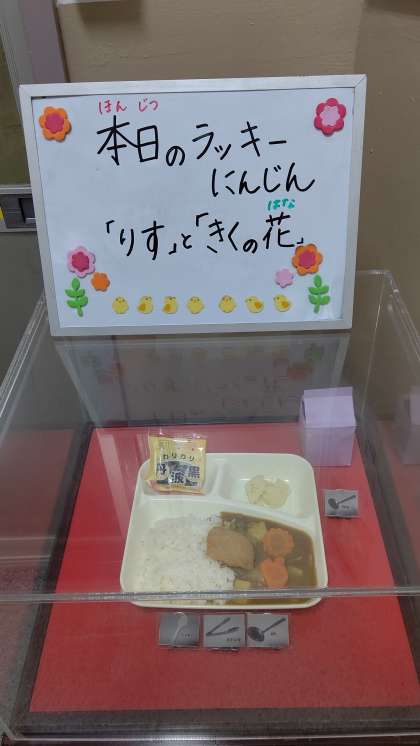 ほん じつ
本日のラッキー
にんじん
はな
「りす」と「きくの花」
カリカリ
丹波黒